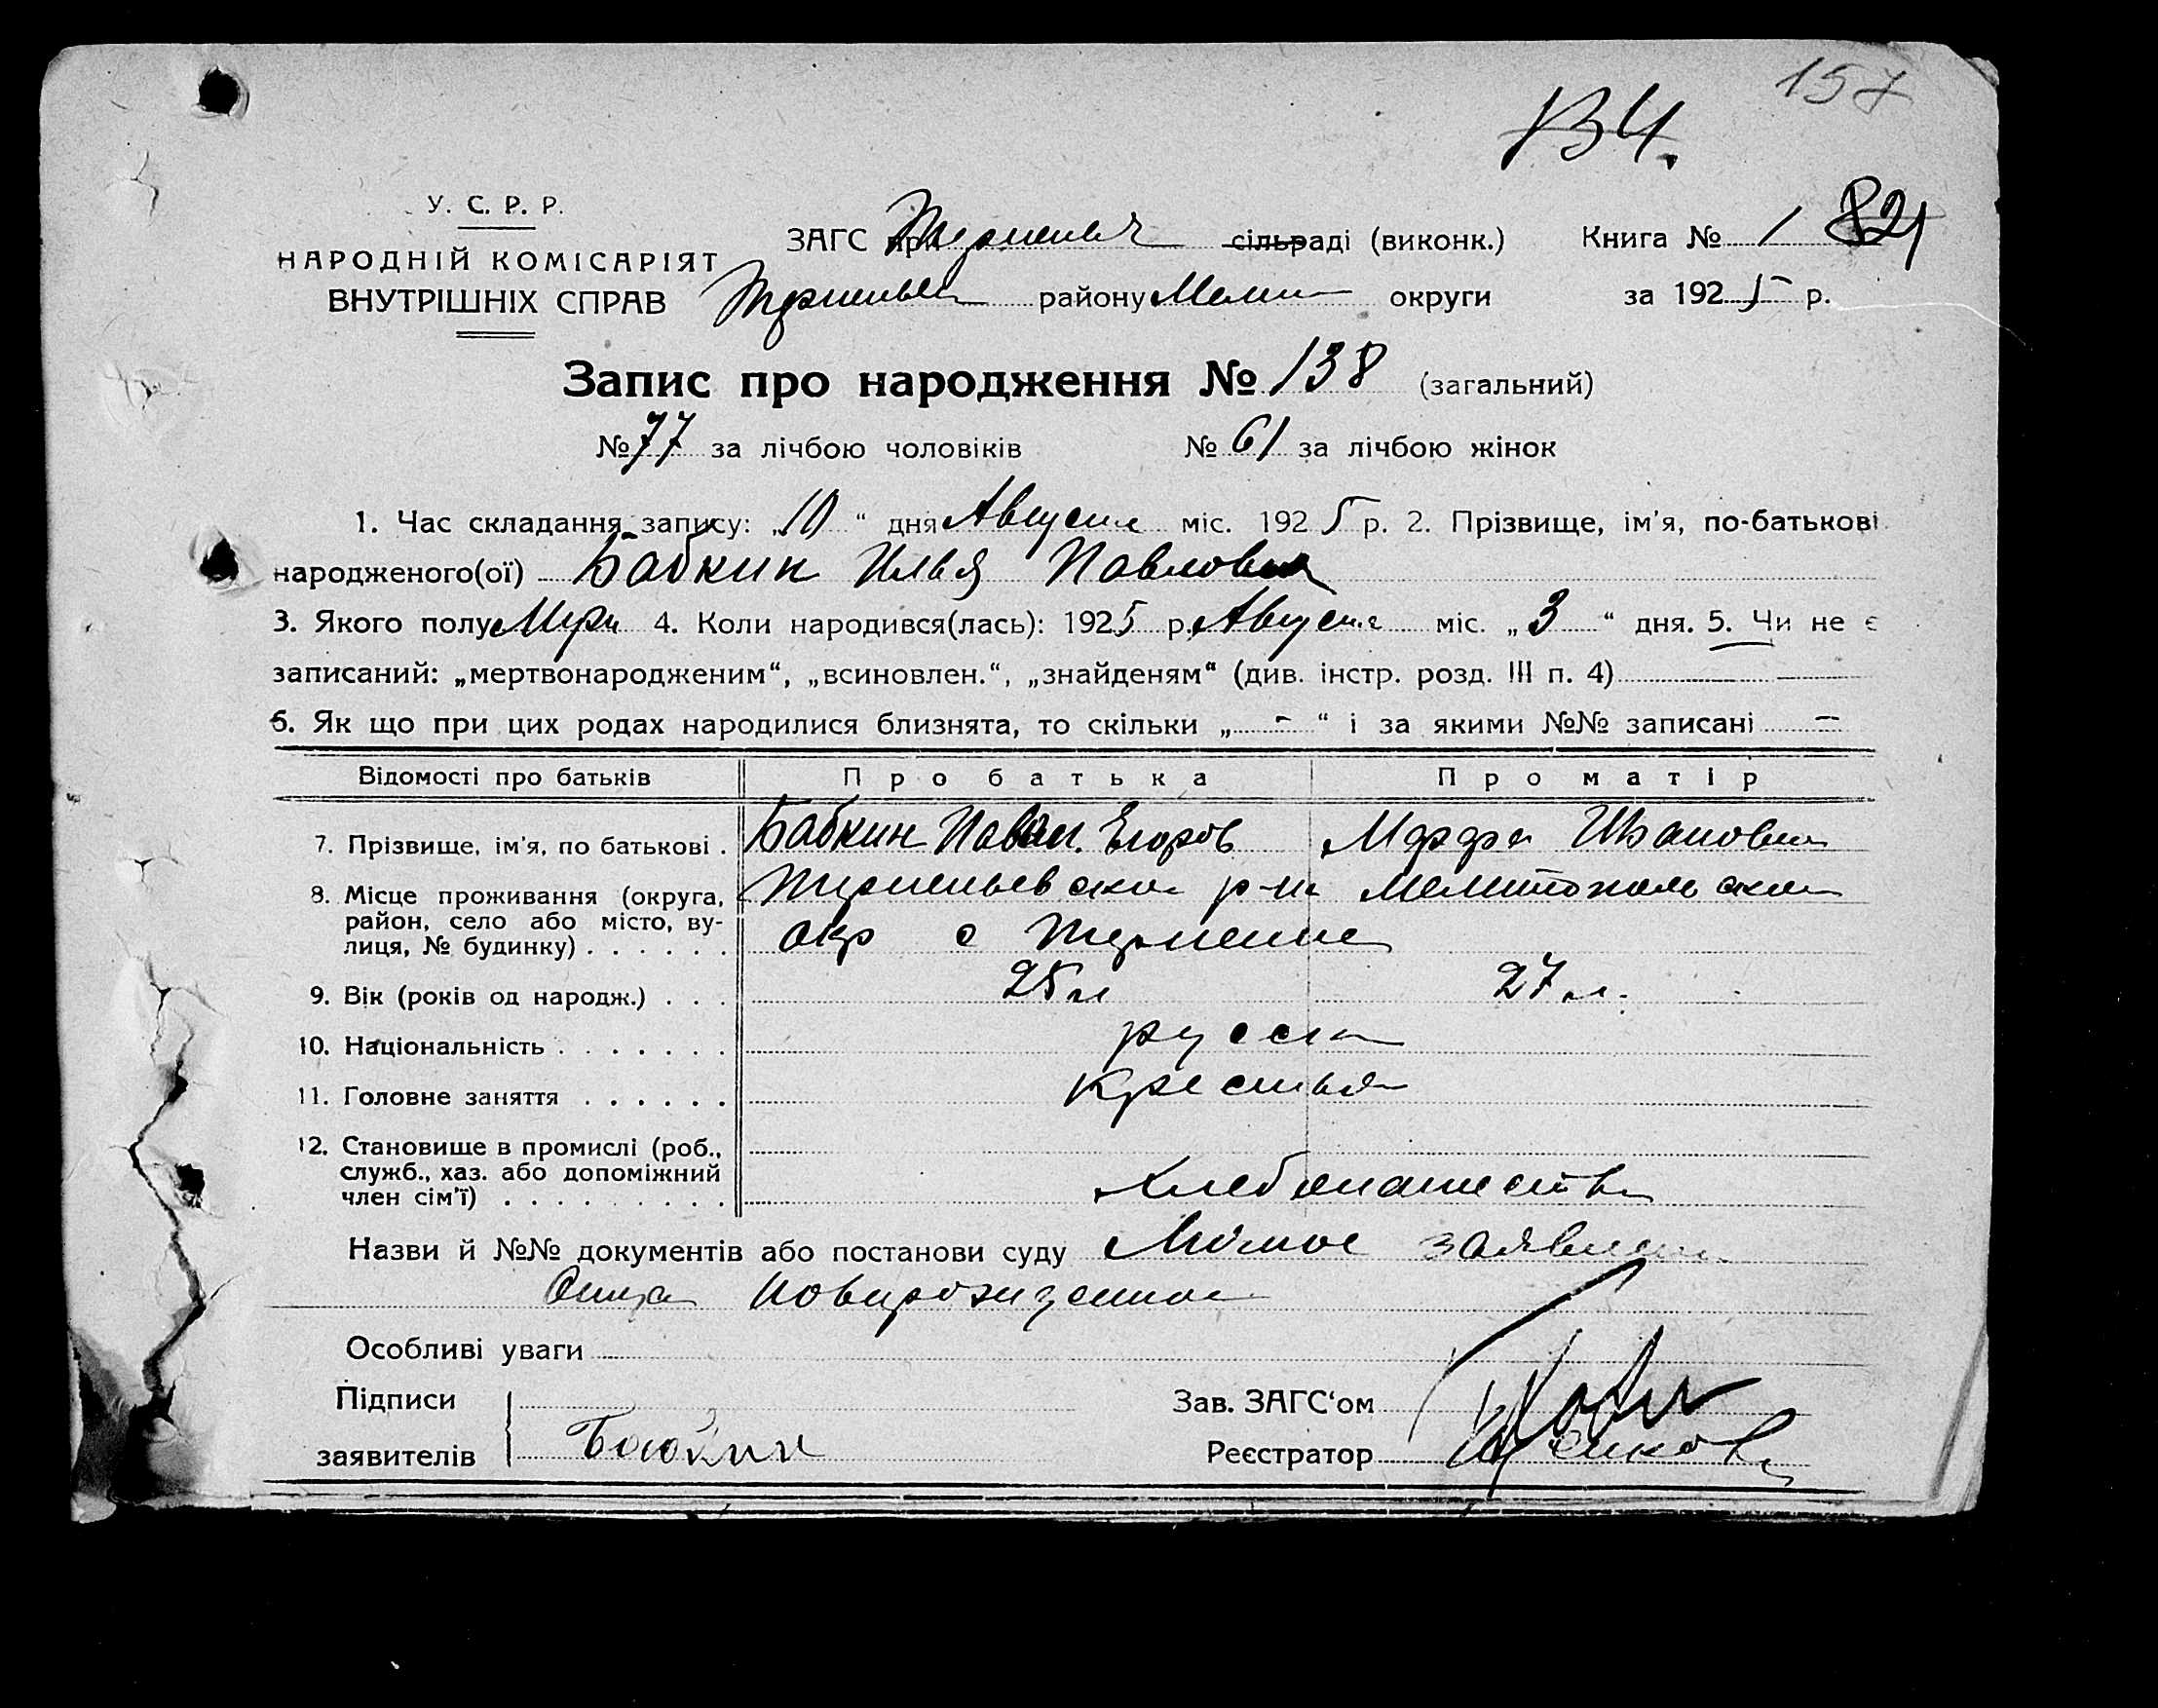 157
В4.
У. С. Р. Р.
НАРОДНІЙ КОМІСАРІЯТ
ВНУТРІШНІХ СПРАВ
ЗАГС при сільраді (виконк.) Книга № 1 82
району Мелит округи за 1925 р.
Запис про народження № 138 (загальний)
№ 77 за лічбою чоловіків № 61 за лічбою жінок
1. Час складання запису: „10“ дня Августа міс. 1925 р. 2. Прізвище, ім'я, по-батькові
народженого(ої) Бабкин Илья Павлович
3. Якого полу Муж 4. Коли народився(лась): 1925 р. Августа міс. „3“ дня. 5. Чи не є
записаний: „мертвонародженим“, „всиновлен.“, „знайденям“ (див. інстр. розд. III п. 4)
6. Як що при цих родах народилися близнята, то скільки „-“ і за якими №№ записані –
Відомості про батьків Про батька Про матір
7. Прізвище, ім'я, по батькові . Бабкин Павел Егоров Марфа Ивановна
8. Місце проживання (округа, р-на Мелитопольской
район, село або місто, ву-
лиця, № будинку) . . . . . . окр с Терпение
9. Вік (років од народж.) . . . 25 л 27 л.
10. Національність . . . . . . . русск
11. Головне заняття . . . . . . Крестьян
12. Становище в промислі (роб.,
служб., хаз. або допоміжний
член сім'ї) . . . . . . . . . Хлебопашество
Назви й №№ документів або постанови суду Личное заявление
Отца Новорожденного
Особливі уваги
Підписи Зав. ЗАГС‘ом
заявителів Бабкин Реєстратор